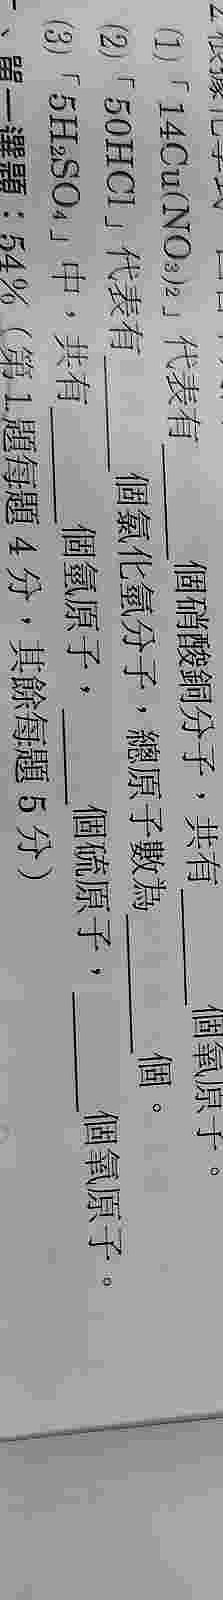 (1)「14Cu(NO₃)₂」代表有______個硝酸銅分子，共有______個氧原子。
(2)「50HCl」代表有______個氯化氫分子，總原子數為______個。
(3)「5H₂SO₄」中，共有______個氫原子，______個硫原子，______個氧原子。
、單一選題：54%（第1題每題4分，其餘每題5分）